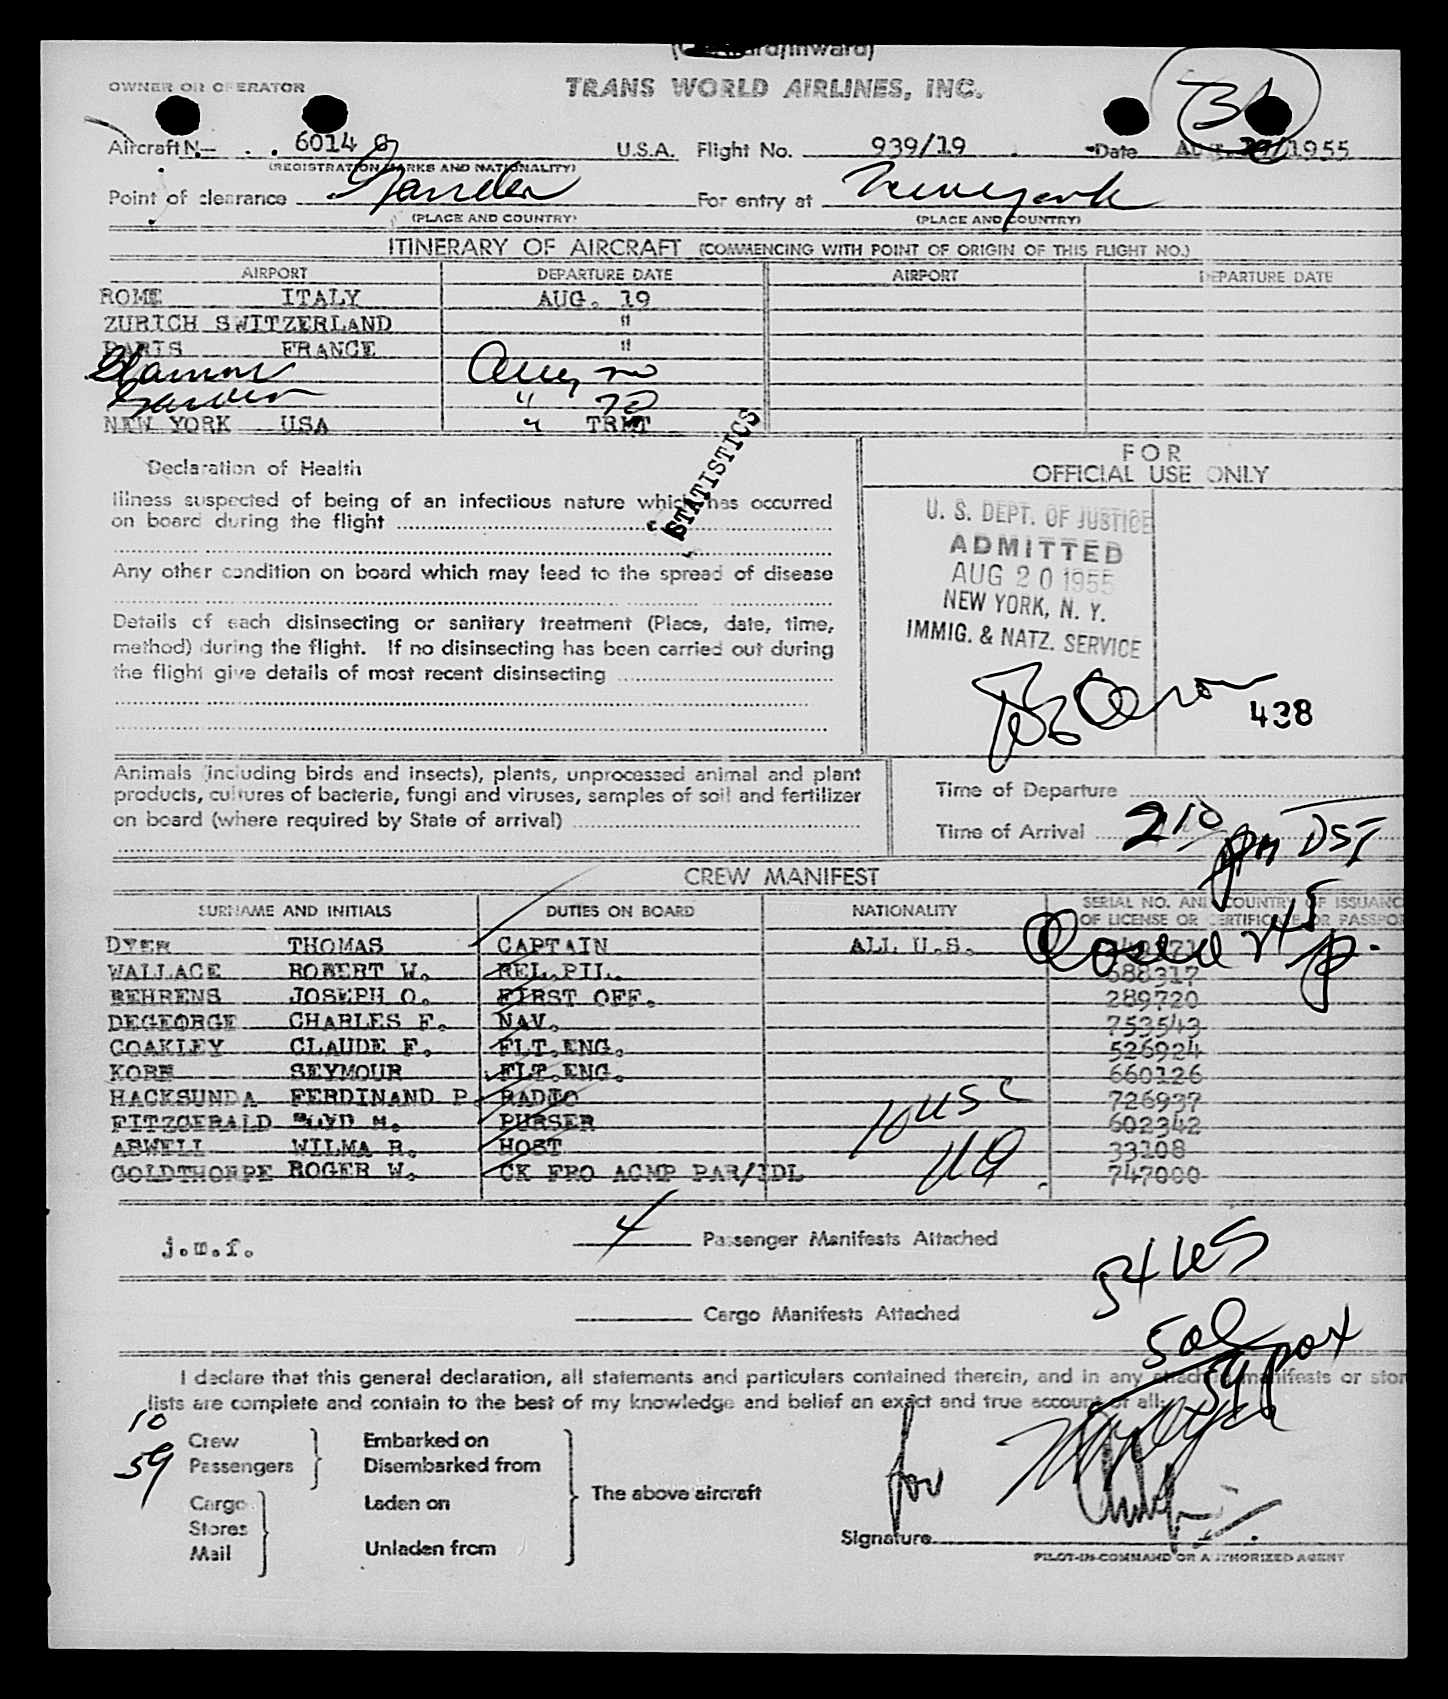 TRANS WORLD AIRLINES, INC.
OWNER OR OPERATOR
Aircraft N— 6014 C U.S.A. Flight No. 939/19 Date 1955
(REGISTRATION MARKS AND NATIONALITY)
Point of clearance Gander For entry at New York
(PLACE AND COUNTRY) (PLACE AND COUNTRY)
ITINERARY OF AIRCRAFT (COMMENCING WITH POINT OF ORIGIN OF THIS FLIGHT NO.)
AIRPORT DEPARTURE DATE AIRPORT DEPARTURE DATE
ROME ITALY AUG. 19
ZURICH SWITZERLAND "
PARIS FRANCE "
Shannon Aug 20
Gander " 20
NEW YORK USA " TRMT
STATISTICS
FOR
OFFICIAL USE ONLY
Declaration of Health
Illness suspected of being of an infectious nature which has occurred
on board during the flight
Any other condition on board which may lead to the spread of disease
Details of each disinsecting or sanitary treatment (Place, date, time,
method) during the flight. If no disinsecting has been carried out during
the flight give details of most recent disinsecting
U. S. DEPT. OF JUSTICE
ADMITTED
AUG 20 1955
NEW YORK, N. Y.
IMMIG. & NATZ. SERVICE
438
Animals (including birds and insects), plants, unprocessed animal and plant
products, cultures of bacteria, fungi and viruses, samples of soil and fertilizer
on board (where required by State of arrival)
Time of Departure
Time of Arrival 2 10 pm DST
Closed 2 45 p.
CREW MANIFEST
SURNAME AND INITIALS DUTIES ON BOARD NATIONALITY SERIAL NO. AND COUNTRY OF ISSUANC
OF LICENSE OR CERTIFICATE OR PASSPO
DYER THOMAS CAPTAIN ALL U.S.
WALLACE ROBERT W. REL.PIL. 688317
BEHRENS JOSEPH O. FIRST OFF. 289720
DEGEORGE CHARLES F. NAV. 753543
COAKLEY CLAUDE F. FLT.ENG. 526924
KOBE SEYMOUR FLT.ENG. 660126
HACKSUNDA FERDINAND P. RADIO 726937
FITZGERALD BOYD M. PURSER 602342
ABWELL WILMA R. HOST 33108
GOLDTHORPE ROGER W. CK FRO ACMP PAR/IDL 747000
10 USC
j.m.f.
4 Passenger Manifests Attached
Cargo Manifests Attached
I declare that this general declaration, all statements and particulars contained therein, and in any attached manifests or stor
lists are complete and contain to the best of my knowledge and belief an exact and true account of all:
10 Crew Embarked on
59 Passengers Disembarked from
The above aircraft
Cargo Laden on
Stores
Mail Unladen from
for
Signature
PILOT-IN-COMMAND OR AUTHORIZED AGENT